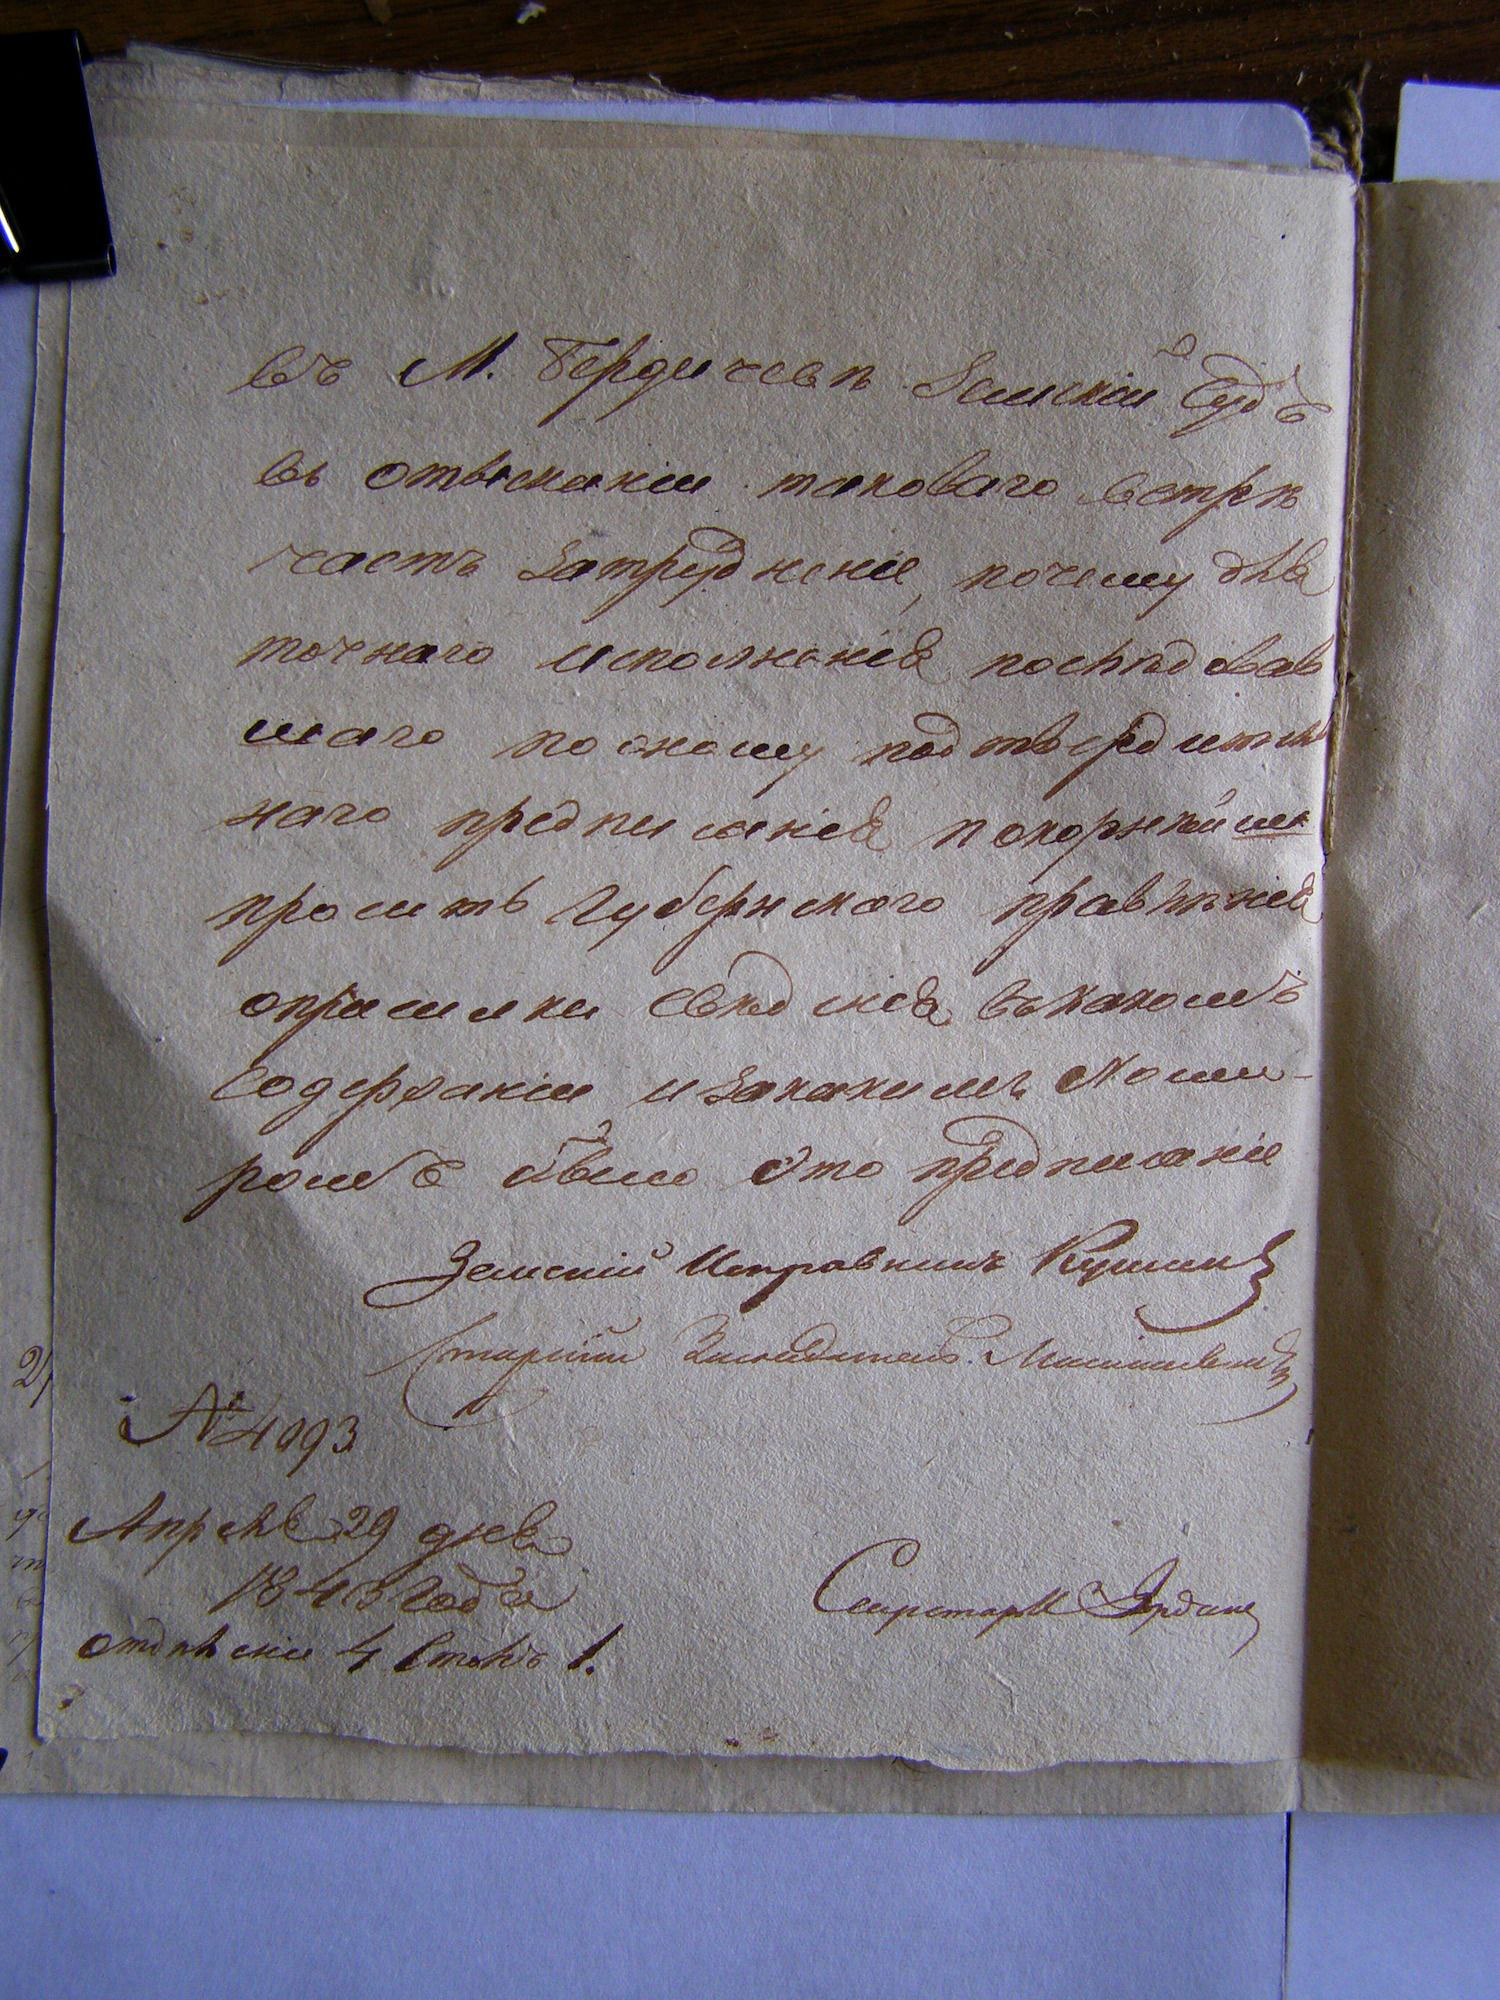 въ М. Бердичевѣ Земской Судъ
въ отысканіи таковаго встрѣ
чаетъ затрудненіе, почему для
точнаго исполненія послѣдовав
шаго по оному подтвердитель
наго предписанія покорнѣйше
просить Губернского правленія
опрасилки свѣденія, въ какомъ
содержаніи и за какимъ Номе-
ромъ было Это предписаніе
Земскій Исправникъ
Старшій Засѣдатель
№ 4093
Апрѣля 29 дня
1843 года
отдѣленіе 4 Столъ 1.
Секретарь